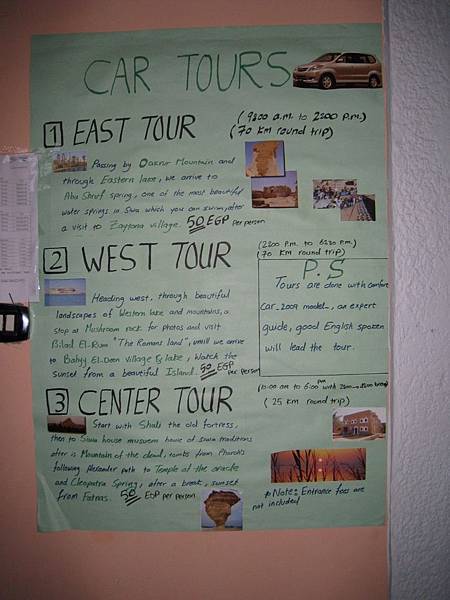 CAR TOURS
1 EAST TOUR
(9:00 a.m. to 2:00 p.m.)
(70 Km round trip)
Passing by Dakrur Mountain and
through Eastern lake, we arrive to
Abu Shruf spring, one of the most beautiful
water springs in Siwa which you can swim, after
a visit to Zaytona village. 50 EGP per person
2 WEST TOUR
(70 Km round trip)
Heading west, through beautiful
landscapes of Western lake and mountains, a
stop at Mushroom rock for photos and visit
Bilad El-Rum "The Romans land", until we arrive
to Bahyy El-Deen village & lake, Watch the
sunset from a beautiful Island. 50 EGP per person
P.S
Tours are done with comfore
car-2009 model-, an expert
guide, good English spoken
will lead the tour.
3 CENTER TOUR
(25 Km round trip)
Start with Shali the old fortress,
then to Siwa house museuem home of siwa traditions
after is Mountain of the dead, tombs from Pharoh's
following Alexander path to Temple of the oracle
and Cleopatra Spring, after a break, sunset
from Fatnas. 50 EGP per person
* Note: Entrance fees are
not included